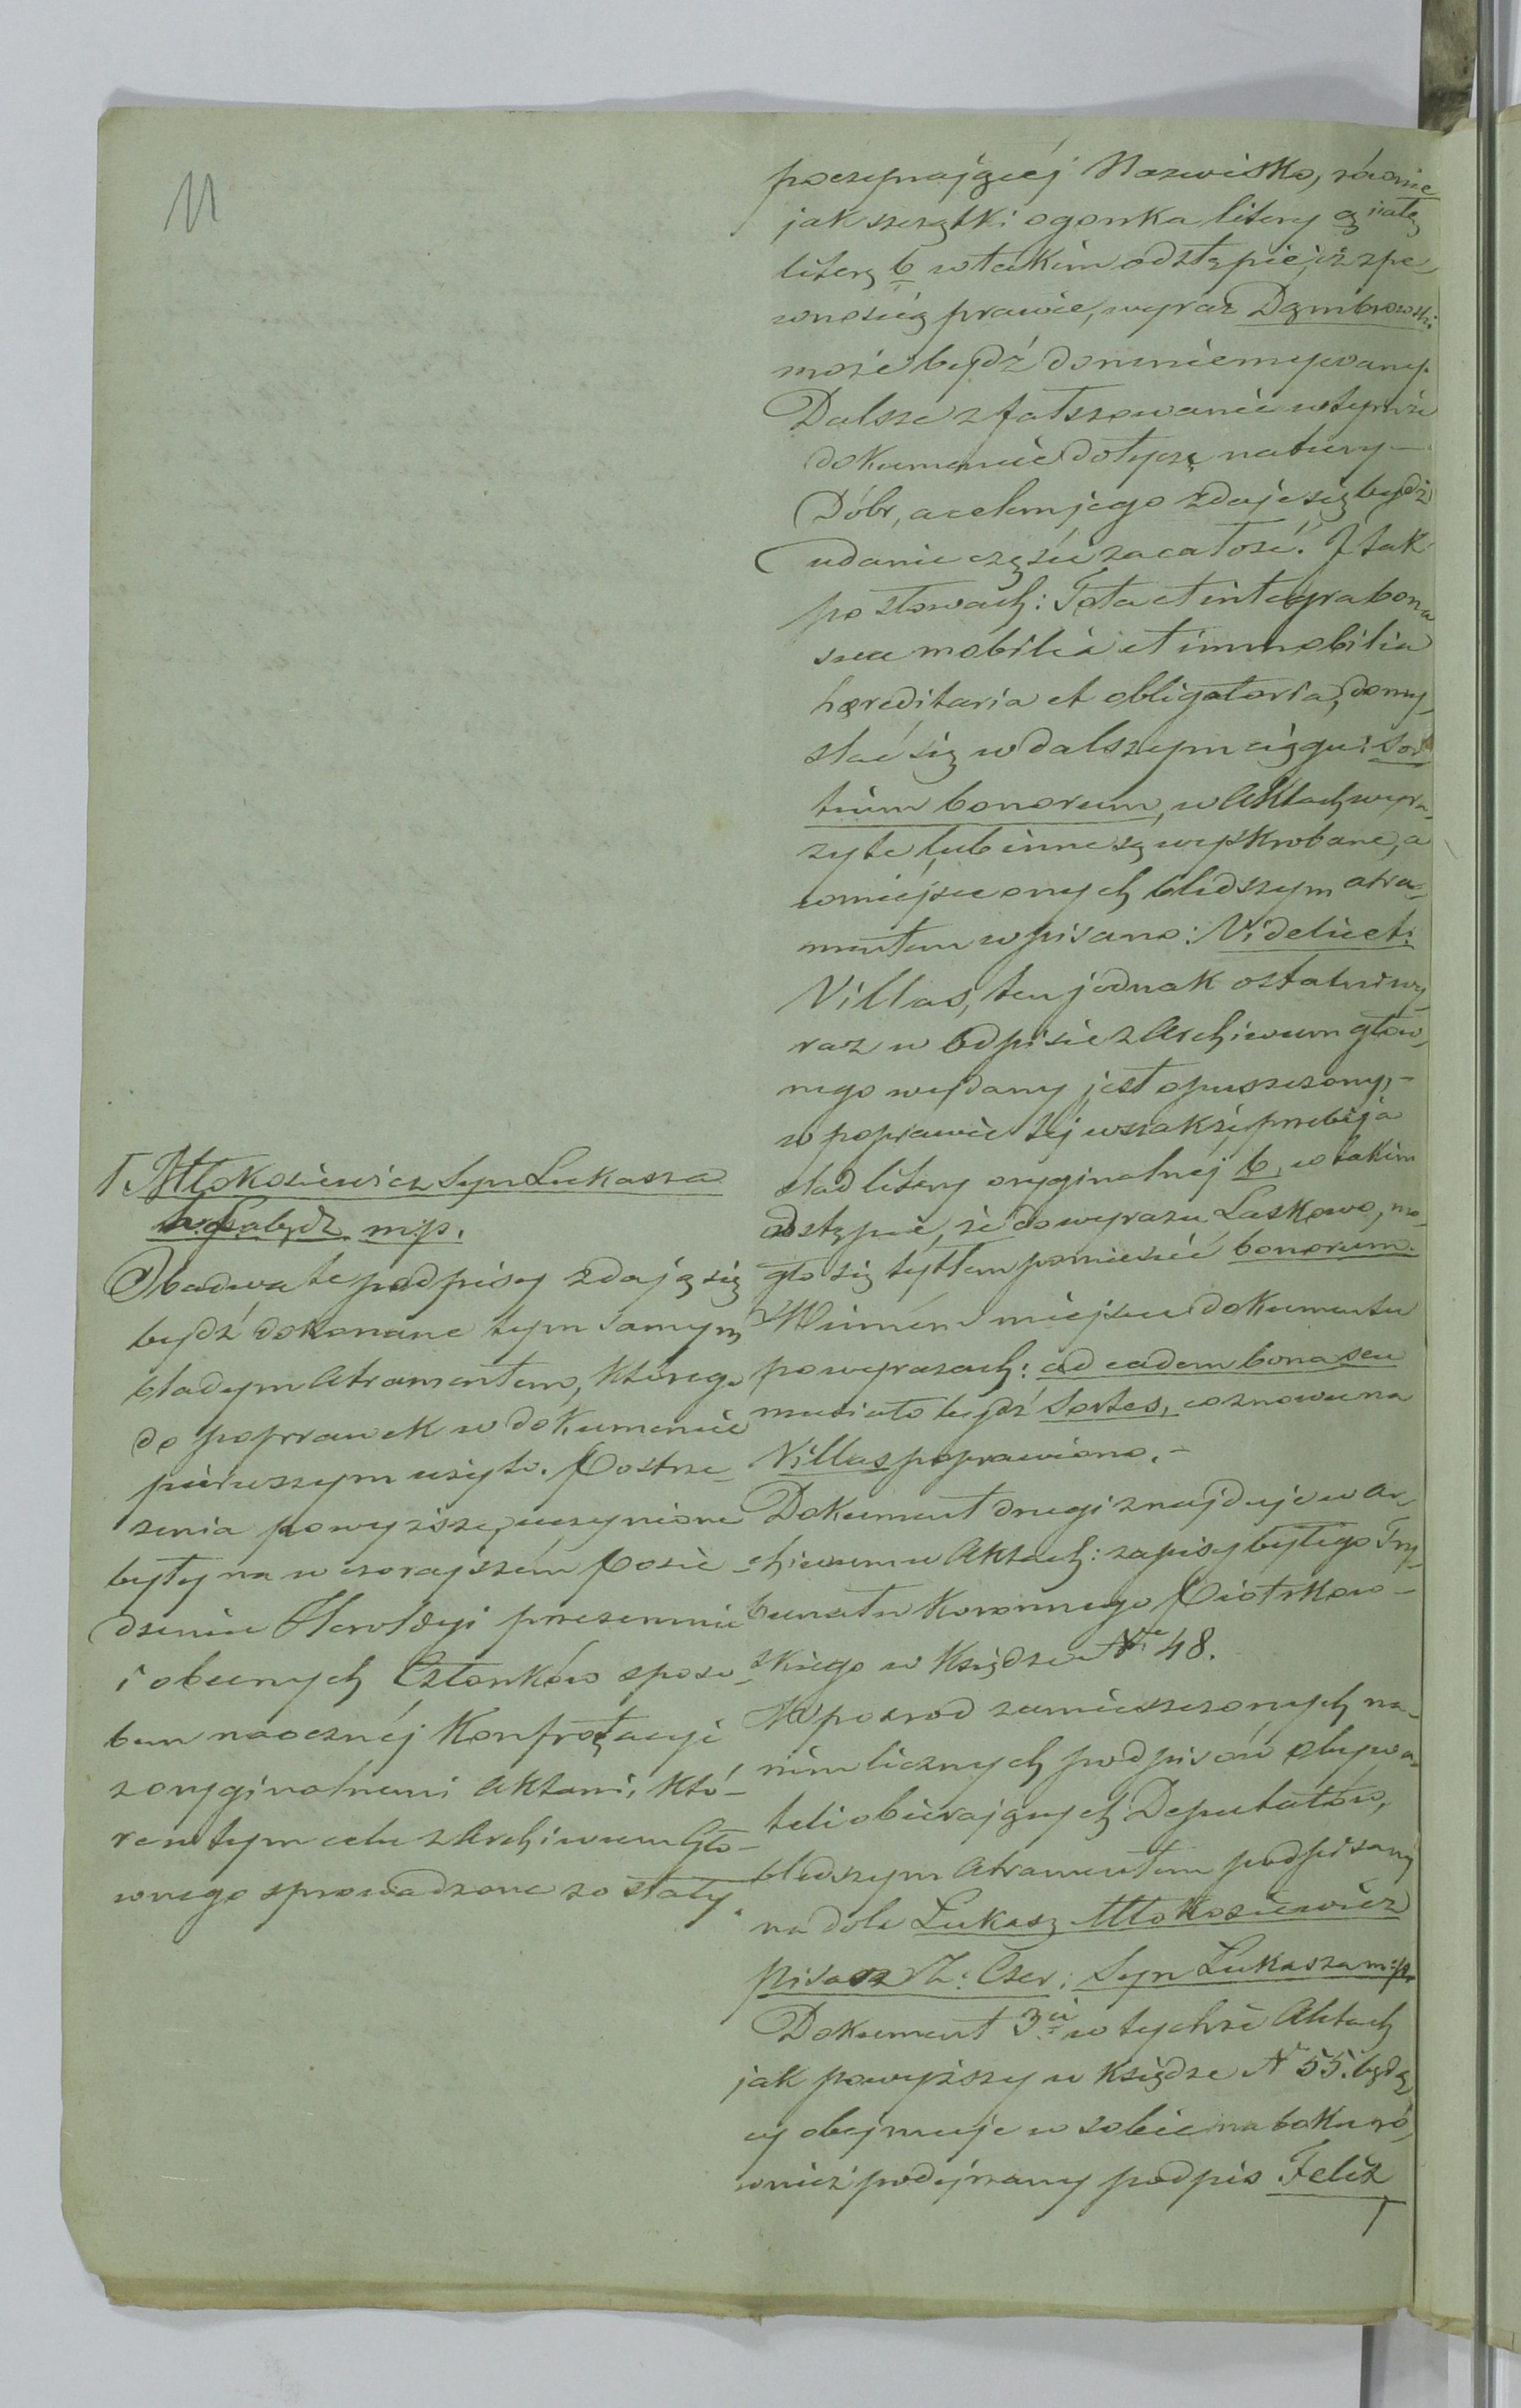 11
poczynającéj Nazwisko, równie
jak szczątki ogonka litery ą i całą
literę b w takim odstępie, iż z pe
wnością prawie, wyraz Dąmbrowski
może bydź domniemywany.
Dalsze zfałszowanie w tymże
dokumencie dotyczę natury
Dóbr, a celem jego zdaje się bydź
udanie części za całość. I tak
po słowach: Tota et integra bona
sua mobilia et immobilia
hæreditaria et obligatoria, domy,
stać się w dalszym ciągu: Sor
tium bonorum, w Aktach wyra,
zy te lub inne są wyskrobane, a
w miejsce onych bledszym atra,
mentem wpisano: Videlicet:
Villas, ten jednak ostatni wy,
raz w Odpisie z Archiwum głów,
nego wydany jest opuszczony,
w poprawie téj wszakże przebija
ślad litery oryginalnéj b, w takim
odstępie, że do wyrazu Laskowo, mo,
gło się tytłem pomieścić bonorum.
W inném miejscu dokumentu
po wyrazach: ad eadem bona seu
musiało bydź Sortes, co znowu na
Villas poprawiono.
Dokument drugi znajduje w Ar,
chiwum w Aktach: zapisy byłego Try,
bunału Koronnego Piotrkow
skiego w Księdze Nr 48.
W pośrod zamieszczonych na
nim licznych podpisów obywa,
teli obierających Deputatów,
bledszym Atramentem podpisany
na dole Łukasz Młokosiewicz
pisarz Z. Czer: Syn Łukasza m:p.
Dokument 3ci w tychże Aktach
jak powyższy w księdze N 55. będą
cy obejmuje w sobie na boku ró,
wnież podéjrzany podpis Felix
Młokosiewicz Syn Łukasza
h. Łabędź m.p.
Obadwa te podpisy zdają się
bydź dokonane tym samym
bladym Atramentem, którego
do poprawek w dokumencie
pierwszym użyto. Postrze
żenia powyższe, uczynione
były na wczorajszém Posie
dzeniu Heroldyi przezemnie
i obecnych Członków sposo
bem naocznéj Konfrotacyi
z oryginalnemi Aktami, któ
re w tym celu z Archiwum Głó
wnego sprowadzone zostały.